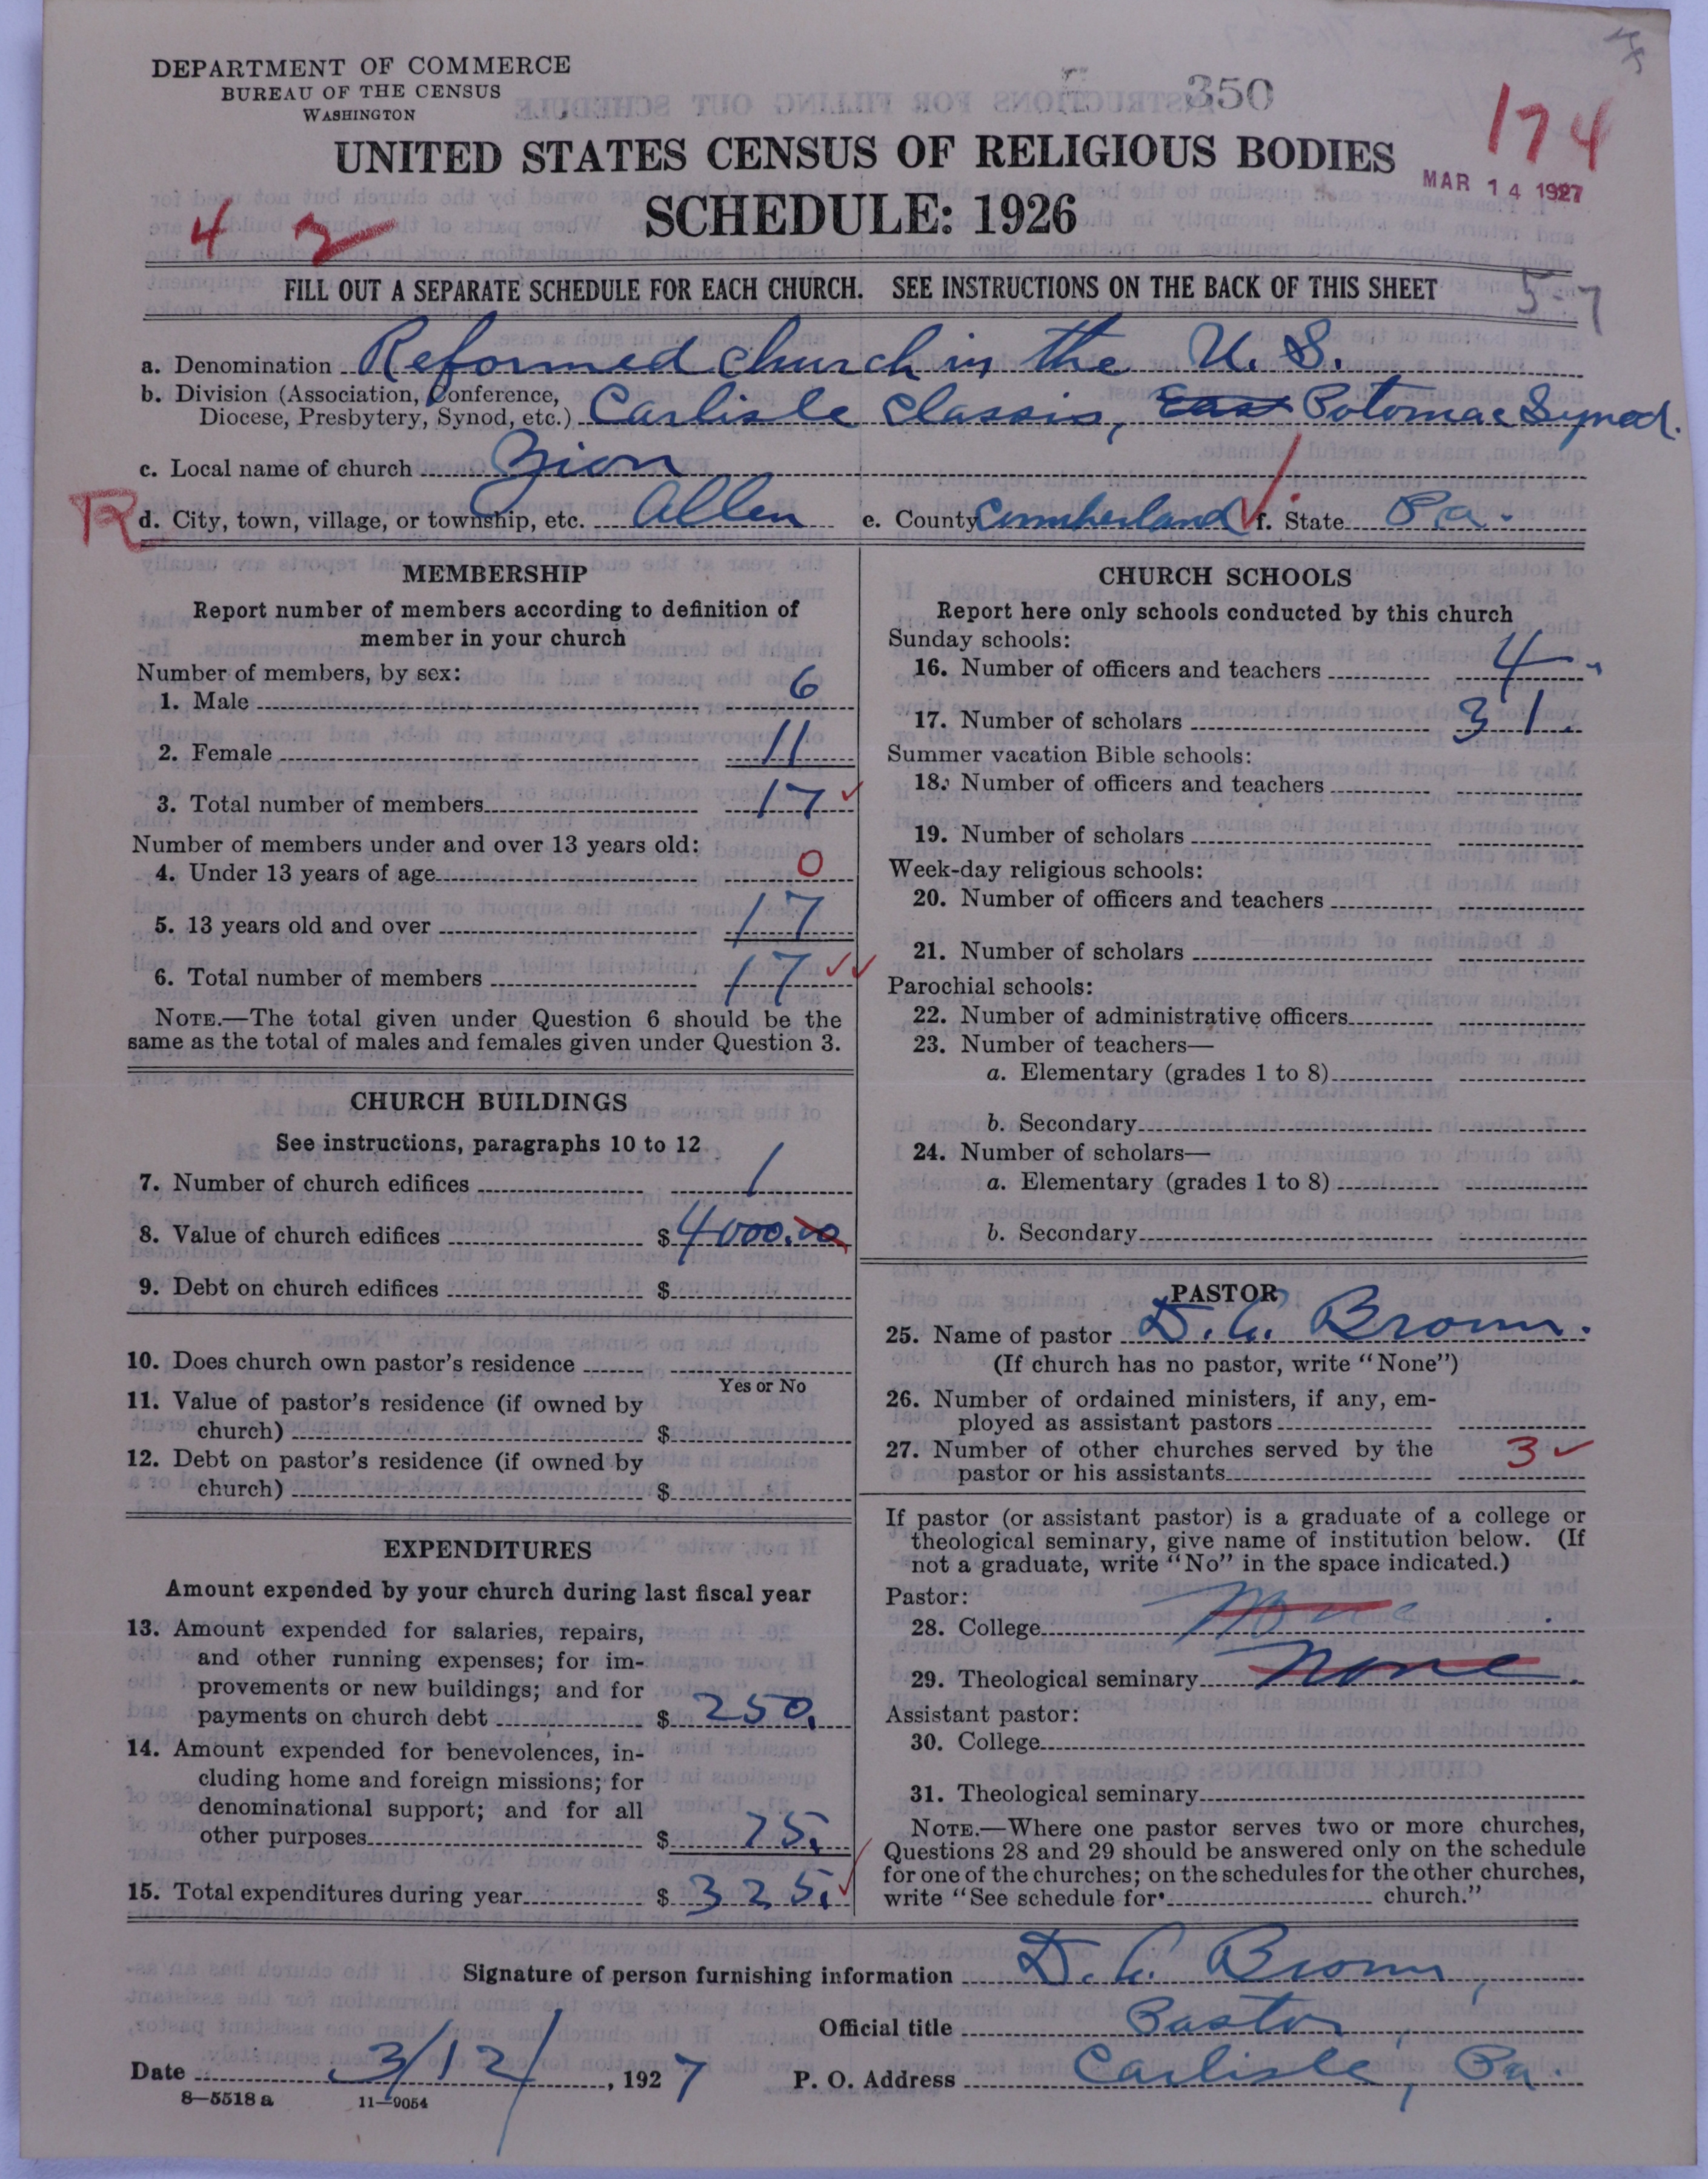 DEPARTMENT OF COMMERCE
BUREAU OF THE CENSUS
WASHINGTON
350
174
UNITED STATES CENSUS OF RELIGIOUS BODIES
MAR 14 1927
SCHEDULE: 1926
4 2
FILL OUT A SEPARATE SCHEDULE FOR EACH CHURCH. SEE INSTRUCTIONS ON THE BACK OF THIS SHEET
5-7
a. Denomination Reformed Church in the U. S.
b. Division (Association, Conference,
Diocese, Presbytery, Synod, etc.) Carlisle Classis, East Potomac Synod.
c. Local name of church Zion
R d. City, town, village, or township, etc. Allen e. County Cumberland f. State Pa.
MEMBERSHIP
Report number of members according to definition of
member in your church
Number of members, by sex:
1. Male 6
2. Female 11
3. Total number of members 17
Number of members under and over 13 years old:
4. Under 13 years of age 0
5. 13 years old and over 17
6. Total number of members 17
NOTE.—The total given under Question 6 should be the
same as the total of males and females given under Question 3.
CHURCH BUILDINGS
See instructions, paragraphs 10 to 12
7. Number of church edifices 1
8. Value of church edifices $ 4000.00
9. Debt on church edifices $
10. Does church own pastor's residence
Yes or No
11. Value of pastor's residence (if owned by
church) $
12. Debt on pastor's residence (if owned by
church) $
EXPENDITURES
Amount expended by your church during last fiscal year
13. Amount expended for salaries, repairs,
and other running expenses; for im-
provements or new buildings; and for
payments on church debt $ 250.
14. Amount expended for benevolences, in-
cluding home and foreign missions; for
denominational support; and for all
other purposes $ 75.
15. Total expenditures during year $ 325.
CHURCH SCHOOLS
Report here only schools conducted by this church
Sunday schools:
16. Number of officers and teachers 4
17. Number of scholars 31.
Summer vacation Bible schools:
18. Number of officers and teachers
19. Number of scholars
Week-day religious schools:
20. Number of officers and teachers
21. Number of scholars
Parochial schools:
22. Number of administrative officers
23. Number of teachers—
a. Elementary (grades 1 to 8)
b. Secondary
24. Number of scholars—
a. Elementary (grades 1 to 8)
b. Secondary
PASTOR
25. Name of pastor D. A. Brown.
(If church has no pastor, write "None")
26. Number of ordained ministers, if any, em-
ployed as assistant pastors
27. Number of other churches served by the
pastor or his assistants 3
If pastor (or assistant pastor) is a graduate of a college or
theological seminary, give name of institution below. (If
not a graduate, write "No" in the space indicated.)
Pastor:
28. College None
29. Theological seminary None.
Assistant pastor:
30. College
31. Theological seminary
NOTE.—Where one pastor serves two or more churches,
Questions 28 and 29 should be answered only on the schedule
for one of the churches; on the schedules for the other churches,
write "See schedule for church."
Signature of person furnishing information D. A. Brown,
Official title Pastor
Date 3/12/, 1927 P. O. Address Carlisle, Pa.
8—5518 a 11—9054